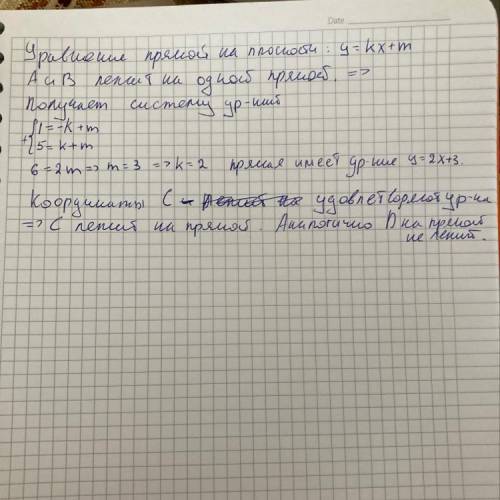 Date
Уравнение прямой на плоскости: y = kx+m
A и B лежит на одной прямой. =>
Получает систему ур-ний
{1 = -k + m
+{5 = k + m
6 = 2m => m = 3 => k = 2 прямая имеет ур-ние y = 2x+3.
Координаты C - лежит на удовлетворяют ур-ю
=> C лежит на прямой. Аналогично D на прямой
не лежит.